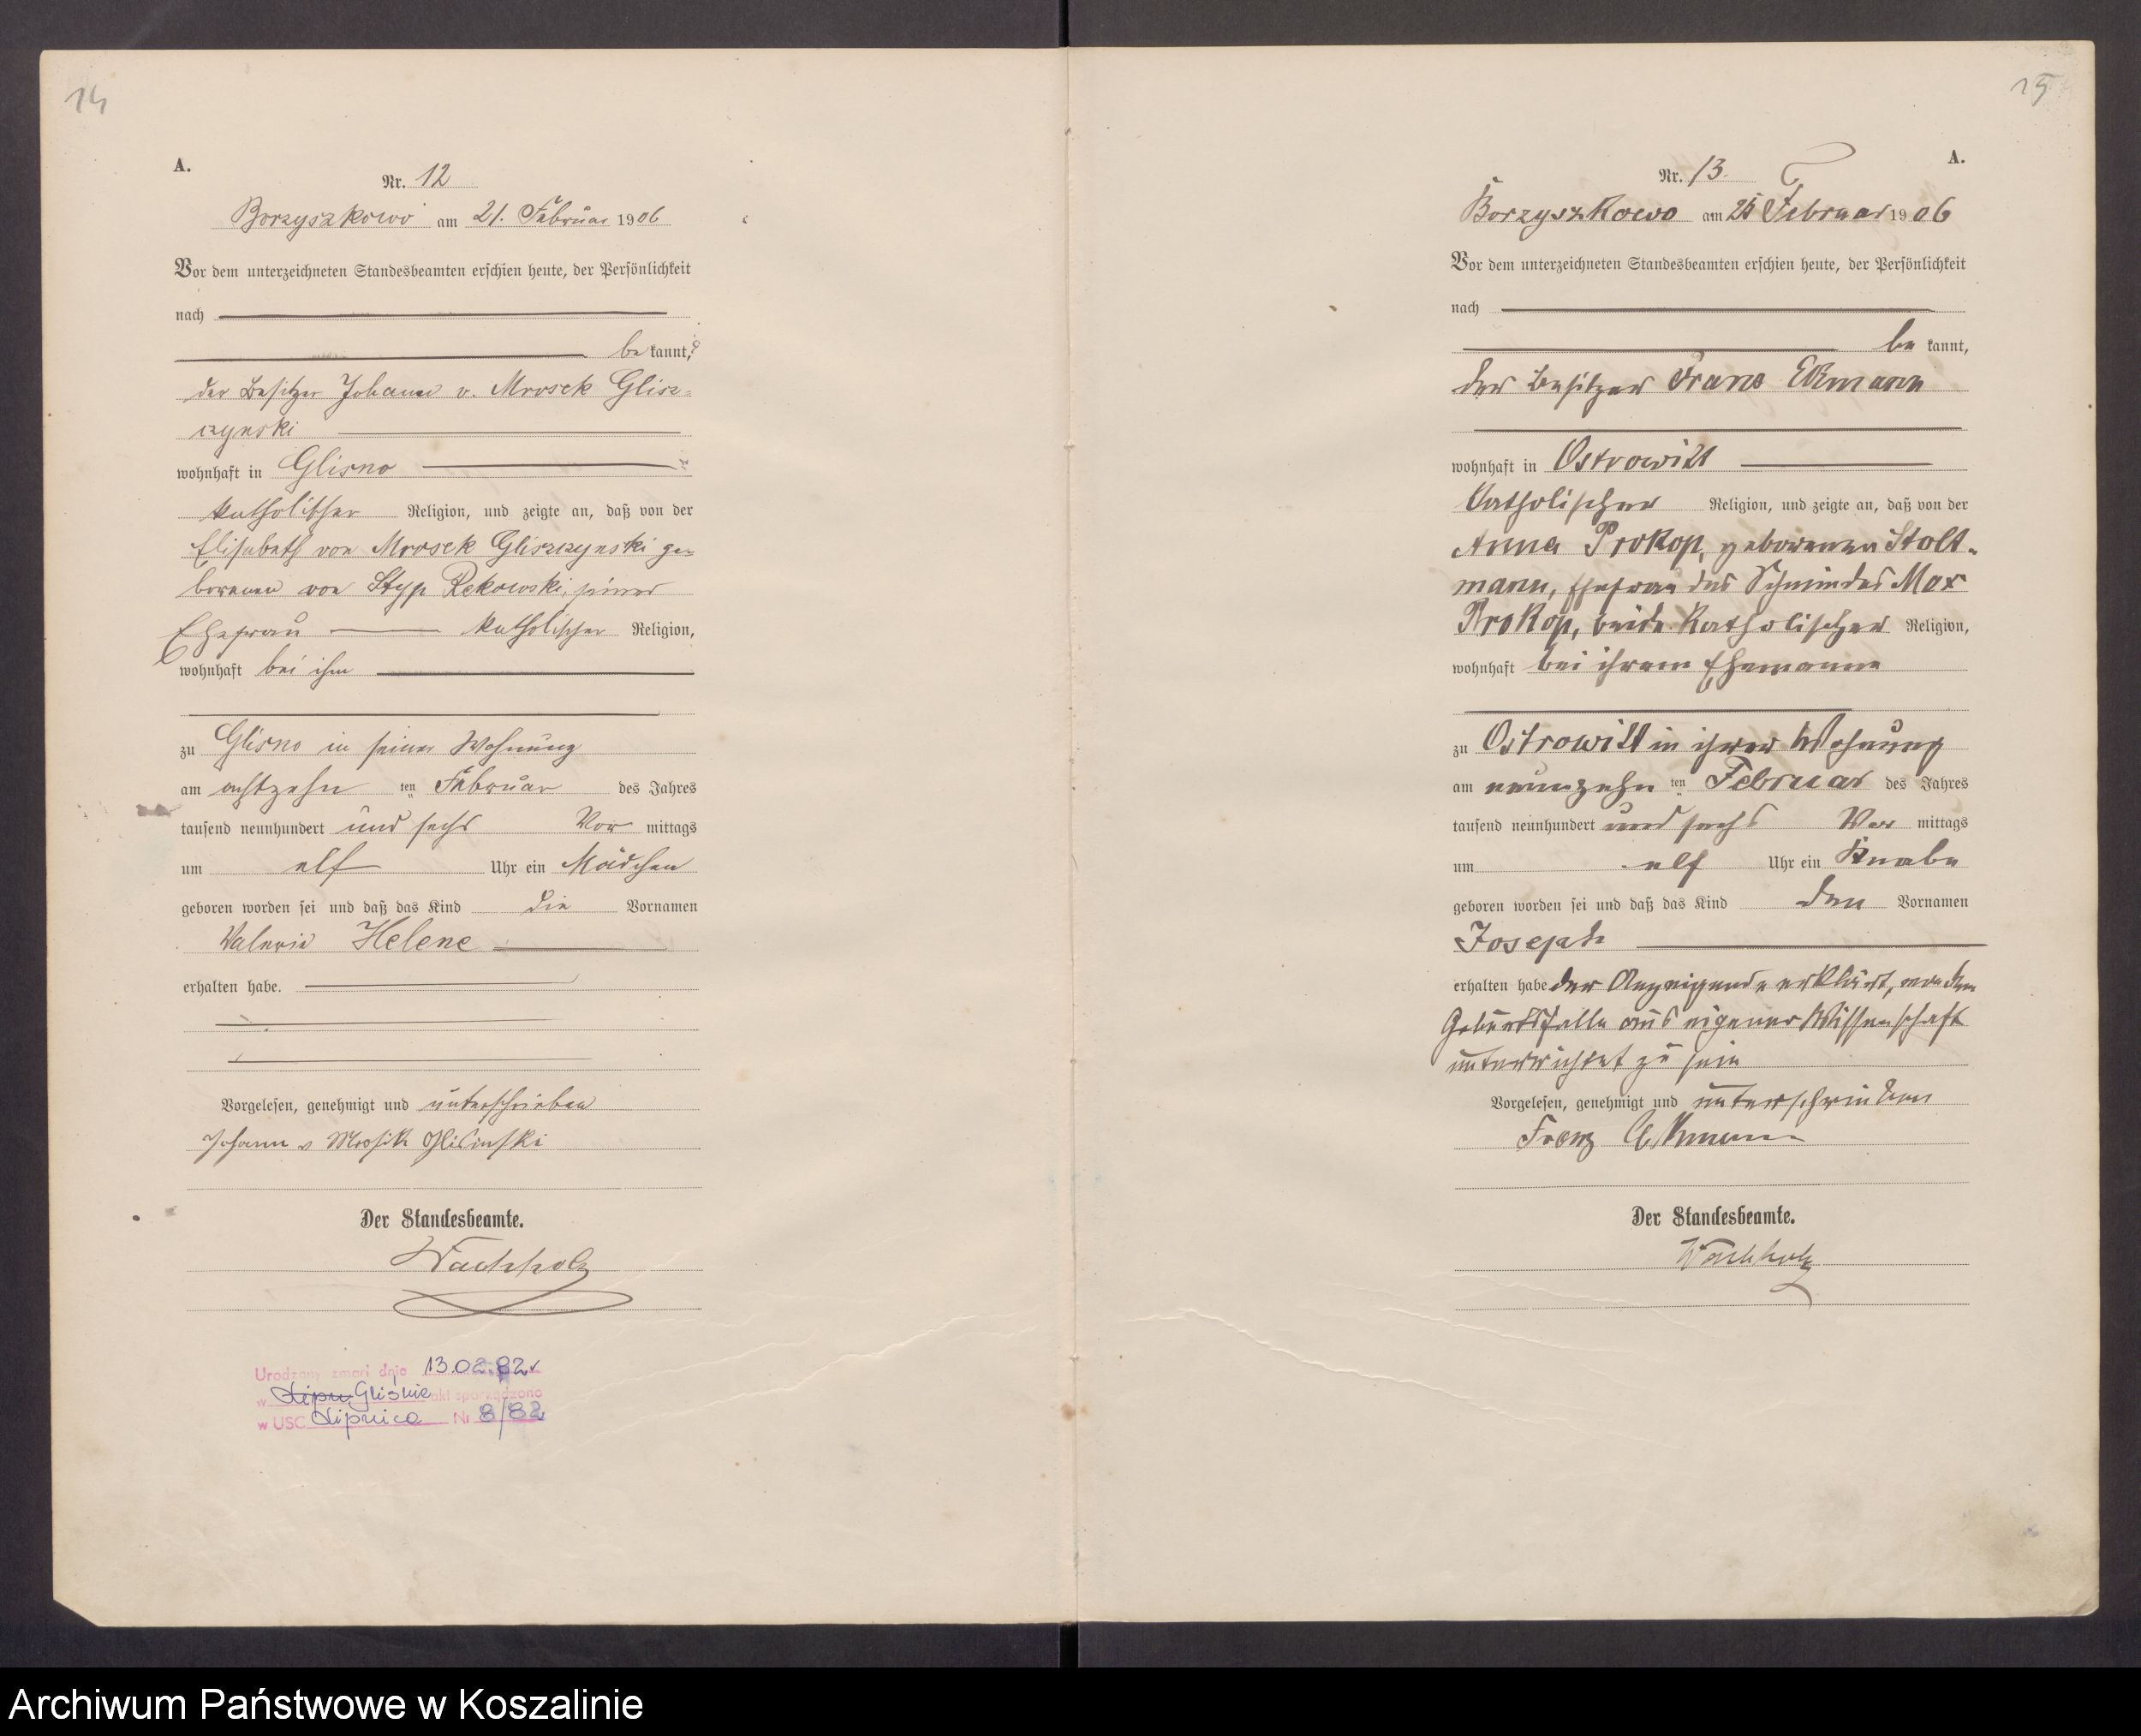 14
A.
Nr. 12
Borzyszkowo am 21. Februar 1906
Vor dem unterzeichneten Standesbeamten erschien heute, der Persönlichkeit
nach
be kannt,
der Besitzer Johann v. Mrosek Glisz-
czynski
wohnhaft in Glisno
katholischer Religion, und zeigte an, daß von der
Elisabeth von Mrosek Gliszczynski ge-
borenen von Styp Rekowski, seiner
Ehefrau katholischer Religion,
wohnhaft bei ihm
zu Glisno in seiner Wohnung
am achtzehn ten Februar des Jahres
tausend neunhundert und sechs Vor mittags
um elf Uhr ein Mädchen
geboren worden sei und daß das Kind die Vornamen
Valeria Helene
erhalten habe.
Vorgelesen, genehmigt und unterschrieben
Johann v Mrosik Glisinski
Der Standesbeamte.
Wachholz
Urodzony zmarł dnia 13.02.82
w Gliśnie akt sporządzono
w USC Lipnica Nr 8/82
15
A.
Nr. 13.
Borzyszkowo am Februar 1906
Vor dem unterzeichneten Standesbeamten erschien heute, der Persönlichkeit
nach
be kannt,
der Besitzer Franz
wohnhaft in Ostrowitt
katholischer Religion, und zeigte an, daß von der
Anna Prokop, geborenen Stolt-
mann, Ehefrau des Schmiedes Max
Prokop, beide katholischer Religion,
wohnhaft bei ihrem Ehemanne
zu Ostrowitt in ihrer Wohnung
am neunzehn ten Februar des Jahres
tausend neunhundert und sechs Vor mittags
um elf Uhr ein Knabe
geboren worden sei und daß das Kind den Vornamen
Joseph
erhalten habe der Anzeigende erklärt, von dem
Geburtsfalle aus eigener Wissenschaft
unterrichtet zu sein
Vorgelesen, genehmigt und unterschrieben
Franz
Der Standesbeamte.
Wachholz
Archiwum Państwowe w Koszalinie